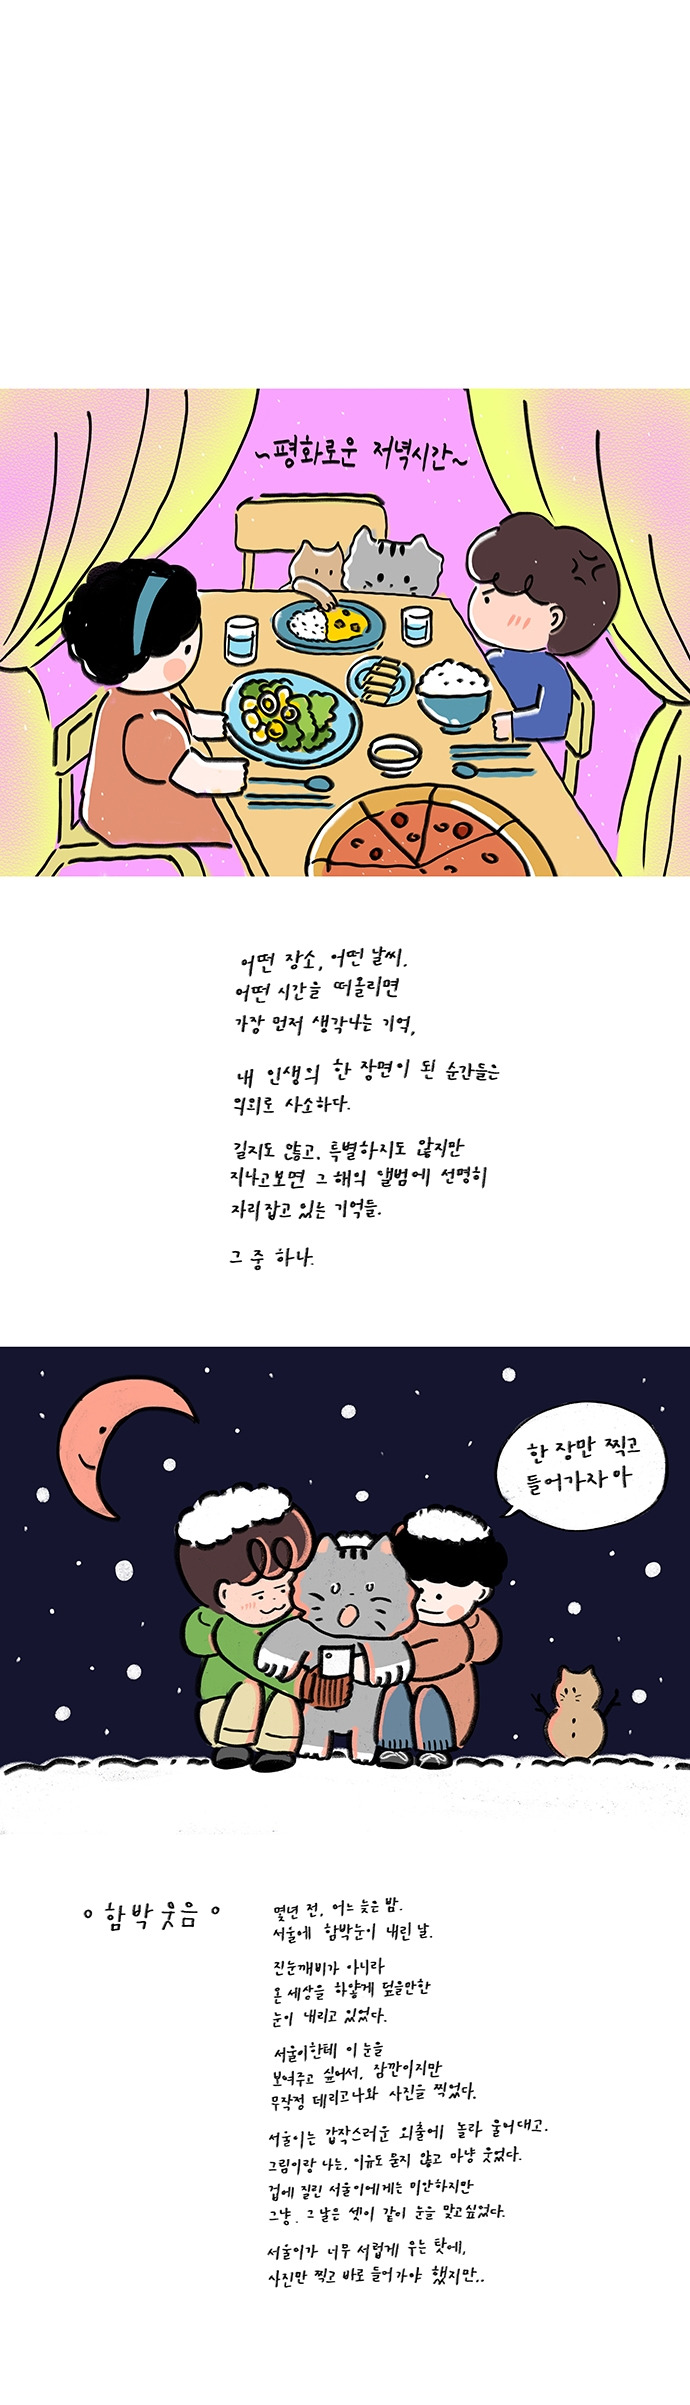 ~평화로운 저녁시간~
어떤 장소, 어떤 날씨.
어떤 시간을 떠올리면
가장 먼저 생각나는 기억,
내 인생의 한 장면이 된 순간들은
의외로 사소하다.
길지도 않고, 특별하지도 않지만
지나고보면 그 해의 앨범에 선명히
자리잡고 있는 기억들.
그 중 하나.
한 장만 찍고
들어가자아
함박웃음
몇년 전, 어느 늦은 밤.
서울에 함박눈이 내린 날.
진눈깨비가 아니라
온 세상을 하얗게 덮을만한
눈이 내리고 있었다.
서울이한테 이 눈을
보여주고 싶어서, 잠깐이지만
무작정 데리고나와 사진을 찍었다.
서울이는 갑작스러운 외출에 놀라 울어대고.
그림이랑 나는, 이유도 묻지 않고 마냥 웃었다.
겁에 질린 서울이에게는 미안하지만
그냥. 그 날은 셋이 같이 눈을 맞고싶었다.
서울이가 너무 서럽게 우는 탓에,
사진만 찍고 바로 들어가야 했지만..